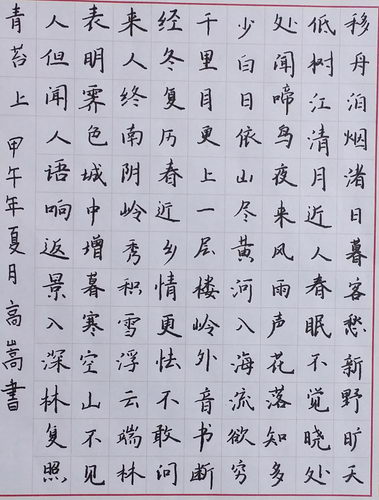 移舟泊烟渚日暮客愁新野旷天
低树江清月近人春眠不觉晓处
处闻啼鸟夜来风雨声花落知多
少白日依山尽黄河入海流欲穷
千里目更上一层楼岭外音书断
经冬复历春近乡情更怯不敢问
来人终南阴岭秀积雪浮云端林
表明霁色城中增暮寒空山不见
人但闻人语响返景入深林复照
青苔上 甲午年夏月高嵩書